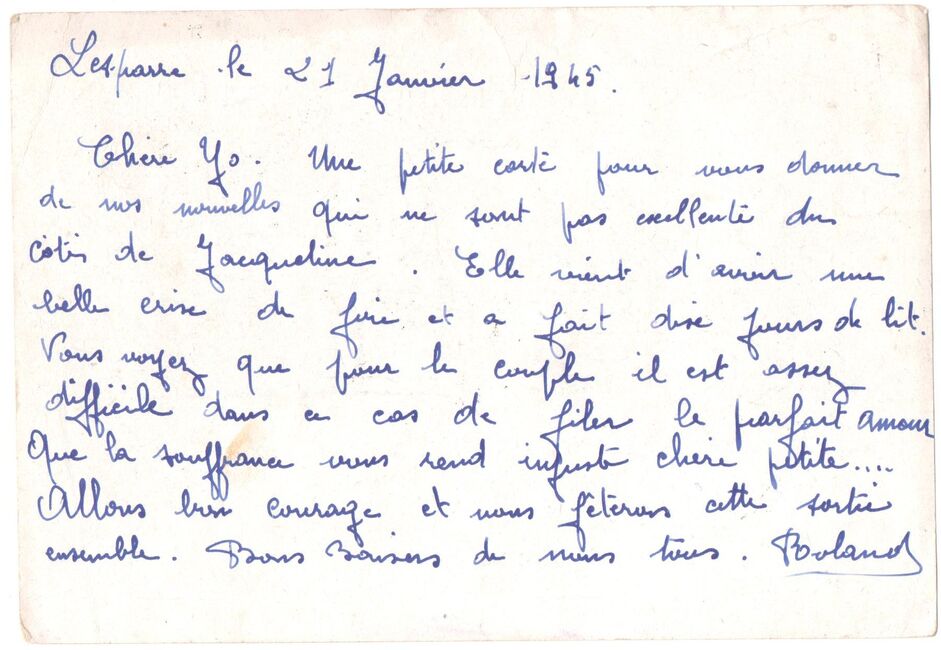 Lesparre le 21 Janvier 1945.
Chère Yo. Une petite carte pour vous donner
de nos nouvelles qui ne sont pas excellente du
côtés de Jacqueline. Elle vient d'avoir une
belle crise de foie et a fait dix jours de lit.
Vous voyez que pour le couple il est assez
difficile dans ce cas de filer le parfait amour
Que la souffrance vous rend injuste chère petite....
Allons bon courage et nous fêterons cette sortie
ensemble. Bons Baisers de nous tous. Roland